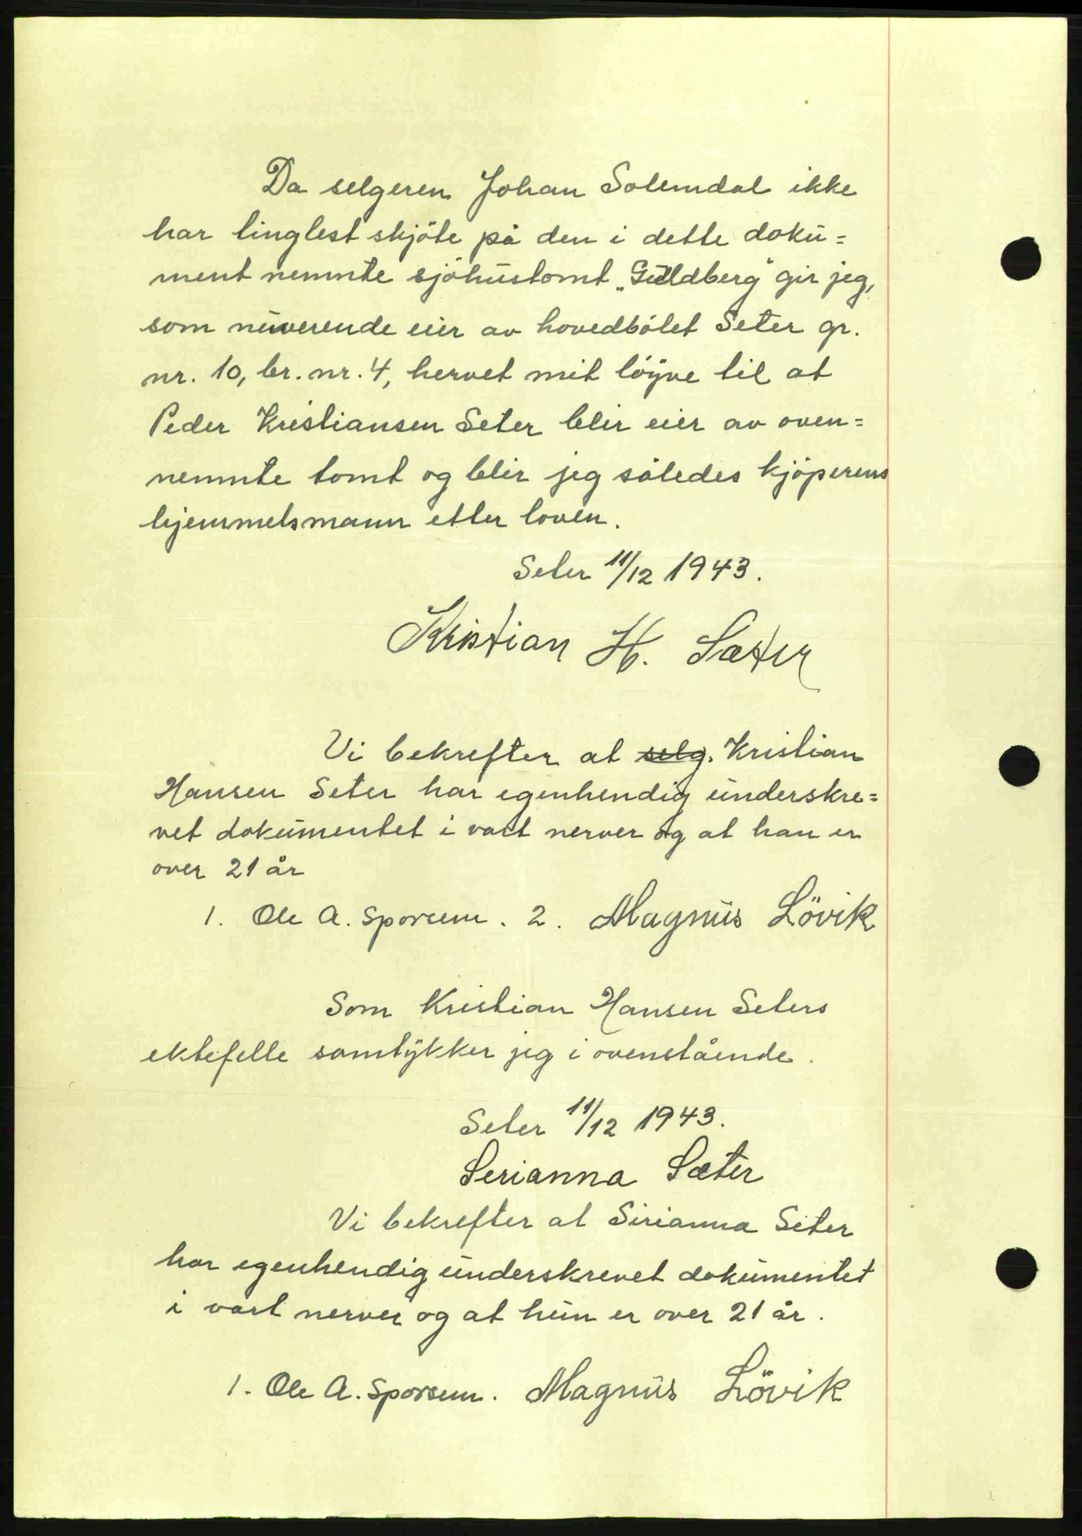 Da selgeren Johan Solemdal ikke
har tinglest skjöte på den i dette doku=
ment nemnte sjöhustomt „Guldberg" gir jeg,
som nuverende eier av hovedbölet Seter gr.
nr. 10, br. nr. 4, hervet mit löyve til at
Peder Kristiansen Seter blir eier av oven=
nemnte tomt og blir jeg således kjöperens
hjemmelsmann etter loven.
Seter 11/12 1943.
Kristian H. Sæter
Vi bekrefter at selg. Kristian
Hansen Seter har egenhendig underskre=
vet dokumentet i vart nerver og at han er
over 21 år
1. Ole A. Sporsem. 2. Magnus Lövik
Som Kristian Hansen Seters
ektefelle samtykker jeg i ovenstående.
Seter 11/12 1943.
Serianna Sæter
Vi bekrefter at Sirianna Seter
har egenhendig underskrevet dokumentet
i vart nerver og at hun er over 21 år.
1. Ole A. Sporsem. Magnus Lövik